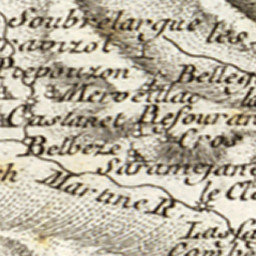 Soubrelargue las
Sainzol
Prepouzon Belleg
Merveillac la
Castanet Resouran
Cros
Belbeze
Saramejane
Martine R. le Cl
Lassa
Combe